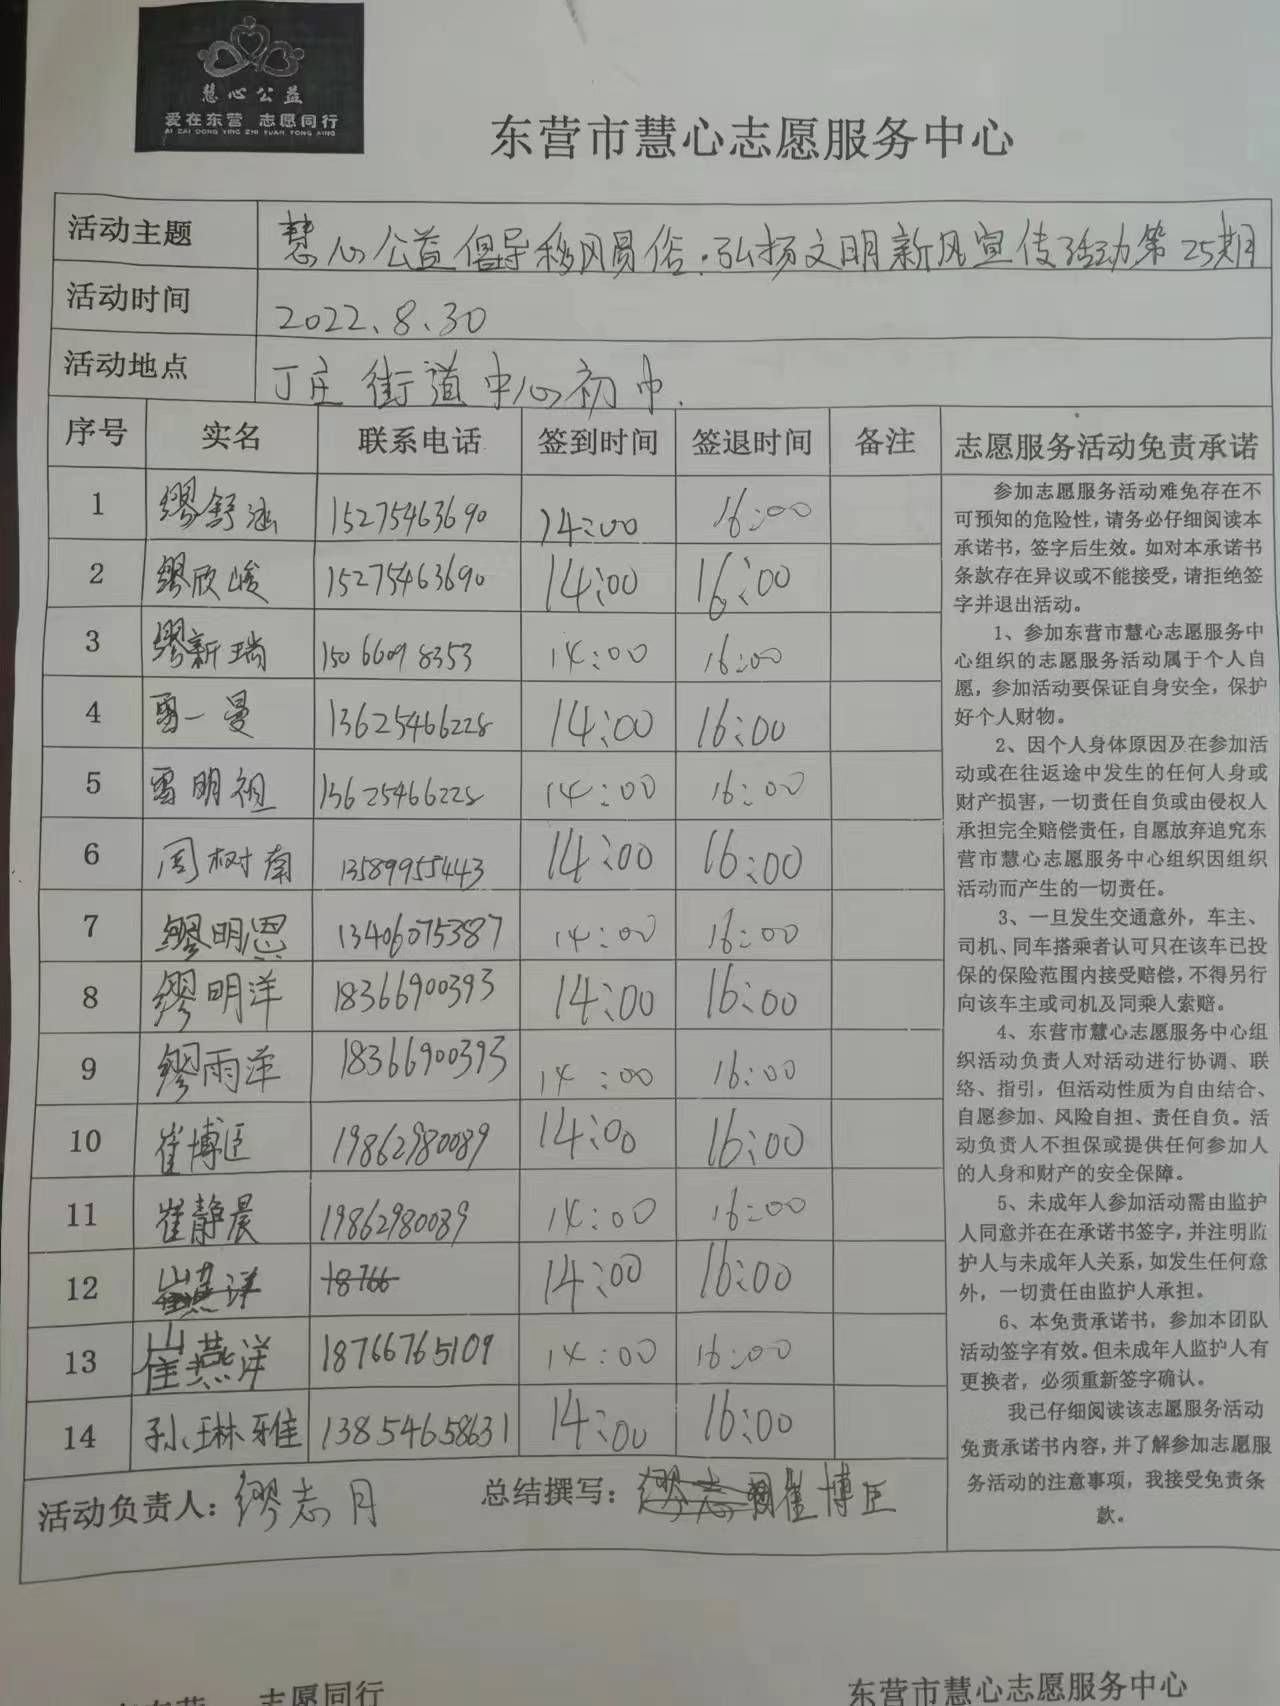 慧心公益
爱在东营 志愿同行
AI ZAI DONG YING ZHI YUAN TONG XING
东营市慧心志愿服务中心
活动主题 慧心公益倡导移风易俗·弘扬文明新风宣传活动第25期
活动时间 2022.8.30
活动地点 丁庄街道中心初中.
序号 实名 联系电话 签到时间 签退时间 备注
1 缪舒涵 15275463690 14:00 16:00
2 缪欣峻 15275463690 14:00 16:00
3 缪新瑞 15066098353 14:00 16:00
4 雷一曼 13625466228 14:00 16:00
5 雷明祖 13625466228 14:00 16:00
6 周树南 13589955443 14:00 16:00
7 缪明恩 13406075387 14:00 16:00
8 缪明洋 18366900393 14:00 16:00
9 缪雨洋 18366900393 14:00 16:00
10 崔博臣 19862980089 14:00 16:00
11 崔静晨 19862980089 14:00 16:00
12 崔燕洋 18766 14:00 16:00
13 崔燕洋 18766765109 14:00 16:00
14 孙琳雅 13854658631 14:00 16:00
活动负责人：缪志月 总结撰写：缪志月崔博臣
志愿服务活动免责承诺
参加志愿服务活动难免存在不
可预知的危险性，请务必仔细阅读本
承诺书，签字后生效。如对本承诺书
条款存在异议或不能接受，请拒绝签
字并退出活动。
1、参加东营市慧心志愿服务中
心组织的志愿服务活动属于个人自
愿，参加活动要保证自身安全，保护
好个人财物。
2、因个人身体原因及在参加活
动或在往返途中发生的任何人身或
财产损害，一切责任自负或由侵权人
承担完全赔偿责任，自愿放弃追究东
营市慧心志愿服务中心组织因组织
活动而产生的一切责任。
3、一旦发生交通意外，车主、
司机、同车搭乘者认可只在该车已投
保的保险范围内接受赔偿，不得另行
向该车主或司机及同乘人索赔。
4、东营市慧心志愿服务中心组
织活动负责人对活动进行协调、联
络、指引，但活动性质为自由结合、
自愿参加、风险自担、责任自负。活
动负责人不担保或提供任何参加人
的人身和财产的安全保障。
5、未成年人参加活动需由监护
人同意并在在承诺书签字，并注明监
护人与未成年人关系，如发生任何意
外，一切责任由监护人承担。
6、本免责承诺书，参加本团队
活动签字有效。但未成年人监护人有
更换者，必须重新签字确认。
我已仔细阅读该志愿服务活动
免责承诺书内容，并了解参加志愿服
务活动的注意事项，我接受免责条
款。
志愿同行
东营市慧心志愿服务中心